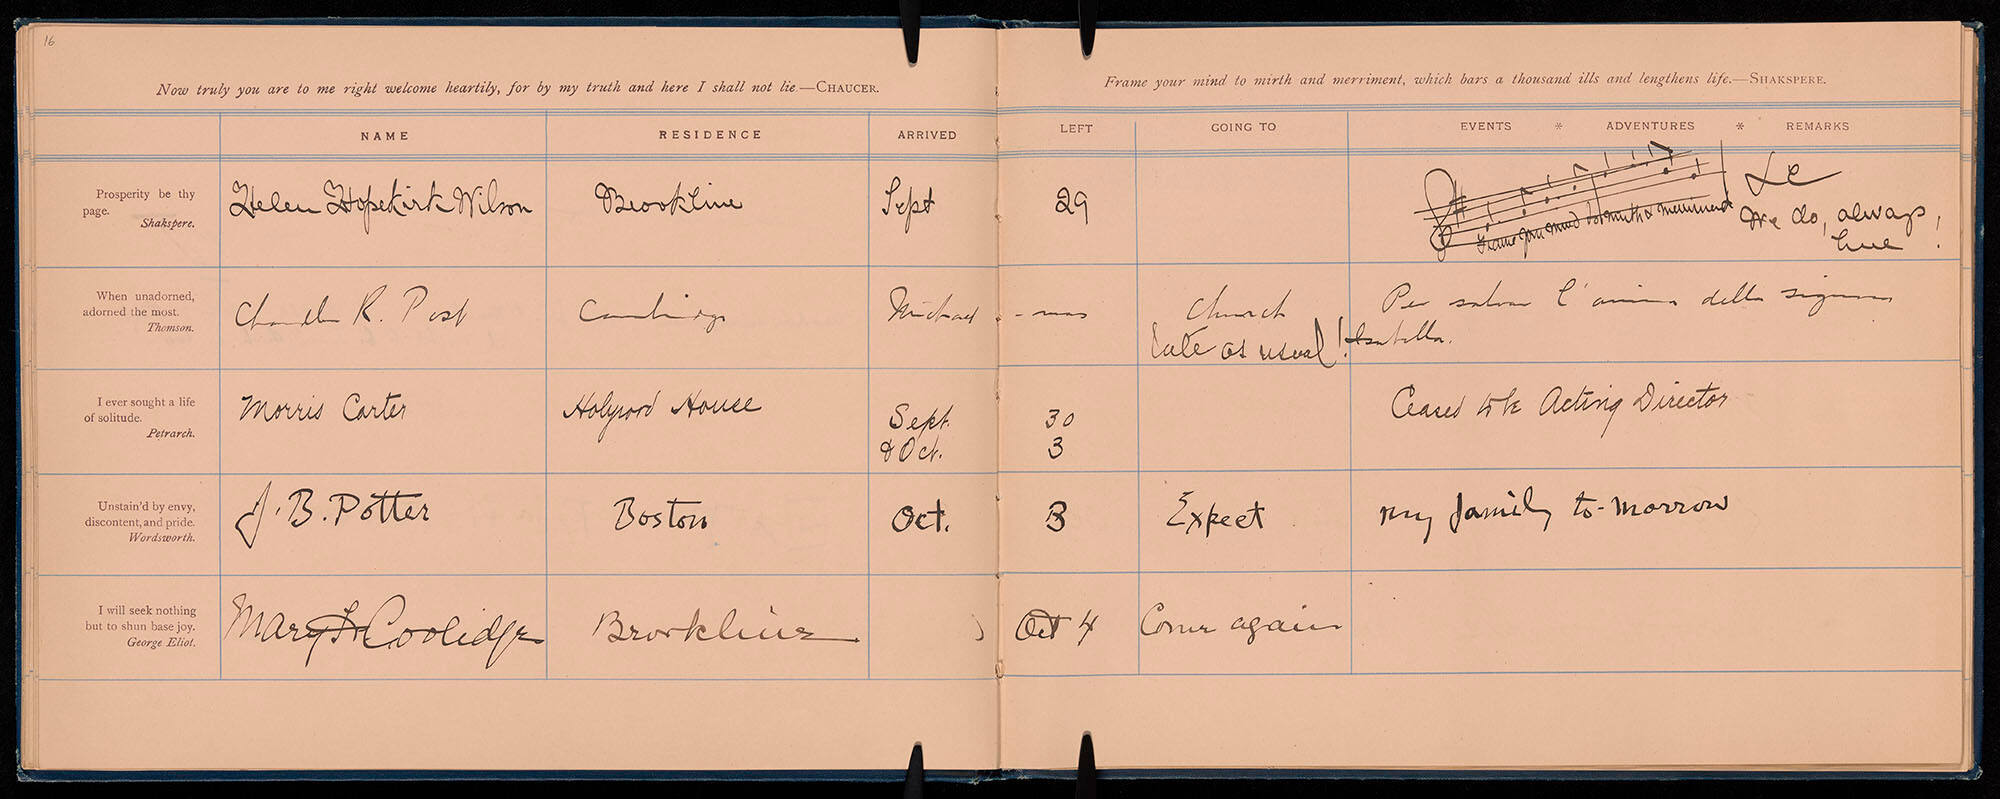 16
Now truly you are to me right welcome heartily, for by my truth and here I shall not lie.—CHAUCER.
NAME RESIDENCE ARRIVED
Prosperity be thy
page.
Shakspere.
Helen Hopekirk Wilson Brookline Sept
When unadorned,
adorned the most.
Thomson.
Chandler R. Post Cambridge Michael
I ever sought a life
of solitude.
Petrarch.
Morris Carter Holyrood House Sept.
& Oct.
Unstain'd by envy,
discontent, and pride.
Wordsworth.
J. B. Potter Boston Oct.
I will seek nothing
but to shun base joy.
George Eliot.
Mary Coolidge Brookline
Frame your mind to mirth and merriment, which bars a thousand ills and lengthens life.—SHAKSPERE.
LEFT GOING TO EVENTS * ADVENTURES * REMARKS
29
Frame your mind to mirth & merriment
We do, always,
here!
- mas Church Per salvar l'anima della signora
Late as usual! Isabella.
30 Ceased to be Acting Director
3
3 Expect my family to-morrow
Oct 4 Come again